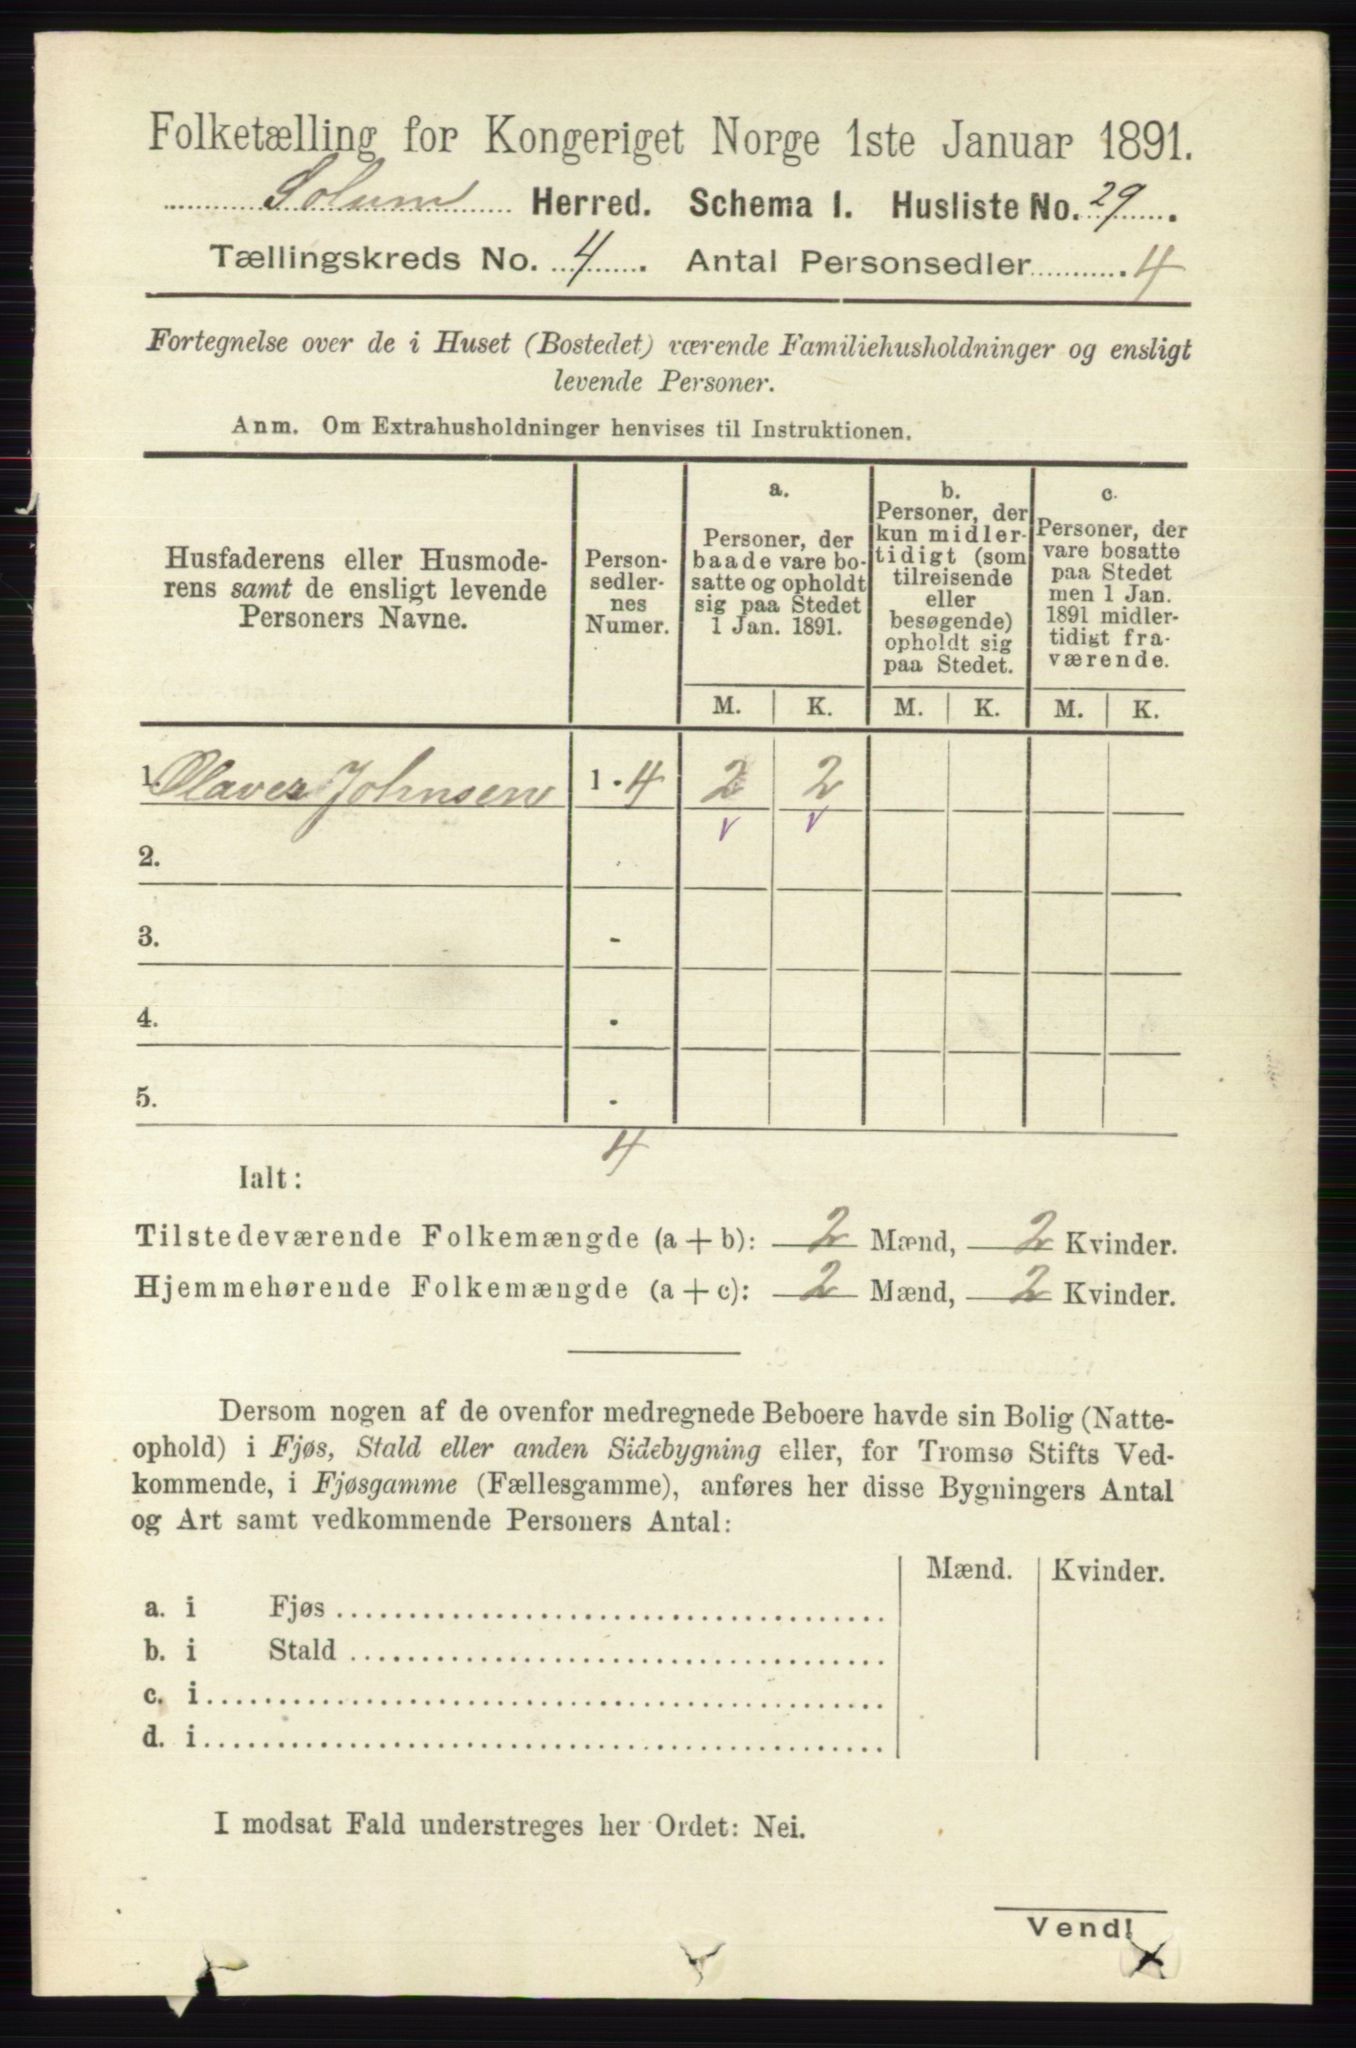 Folketælling for Kongeriget Norge 1ste Januar 1891.
Solum Herred. Schema 1. Husliste No. 29.
Tællingskreds No. 4. Antal Personsedler 4
Fortegnelse over de i Huset (Bostedet) værende Familiehusholdninger og ensligt
levende Personer.
Anm. Om Extrahusholdninger henvises til Instruktionen.
Husfaderens eller Husmode-
rens samt de ensligt levende
Personers Navne.
Person-
sedler-
nes
Numer.
a.
Personer, der
baade vare bo-
satte og opholdt
sig paa Stedet
1 Jan. 1891.
b.
Personer, der
kun midler-
tidigt (som
tilreisende
eller
besøgende)
opholdt sig
paa Stedet.
c.
Personer, der
vare bosatte
paa Stedet
men 1 Jan.
1891 midler-
tidigt fra-
værende.
M. K. M. K. M. K.
1. Olaves Johnsen 1 - 4 2 2
2. -
3. -
4. -
5. -
4
Ialt:
Tilstedeværende Folkemængde (a + b): 2 Mænd, 2 Kvinder.
Hjemmehørende Folkemængde (a + c): 2 Mænd, 2 Kvinder.
Dersom nogen af de ovenfor medregnede Beboere havde sin Bolig (Natte-
ophold) i Fjøs, Stald eller anden Sidebygning eller, for Tromsø Stifts Ved-
kommende, i Fjøsgamme (Fællesgamme), anføres her disse Bygningers Antal
og Art samt vedkommende Personers Antal:
Mænd. Kvinder.
a. i Fjøs
b. i Stald
c. i
d. i
I modsat Fald understreges her Ordet: Nei.
Vend!